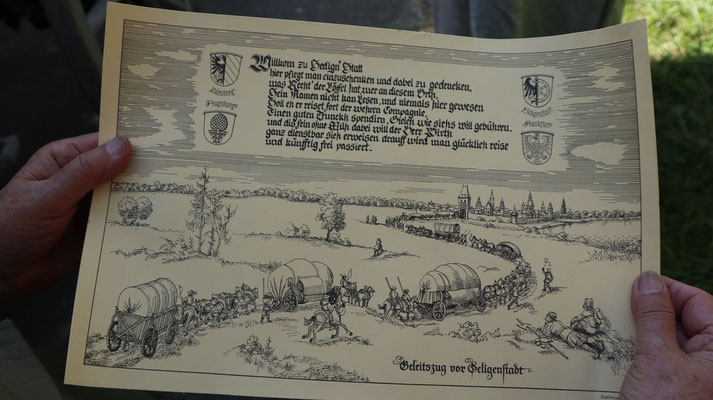 Nürnberg
Augsburg
Willkom zu Seelign' Statt
hier pflegt man einzuschenken und dabei zu gedencken,
was Recht' der Löffel hat zuer an diesem Orth.
Sein Namen nicht kan Lesen, und niemahls hier gewesen
Soll eh er reiset fort der wehren Compagnie,
Einen guten Trunckh spendirn, Gleich wie sichs will gebühren.
und diß sein ohne Müh dabei will der Herr Wirth
ganz dienstbar sich erweisen drauff wird man glücklich reise
und künfftig frei passiert.
Frankfurt
Geleitszug vor Seligenstadt